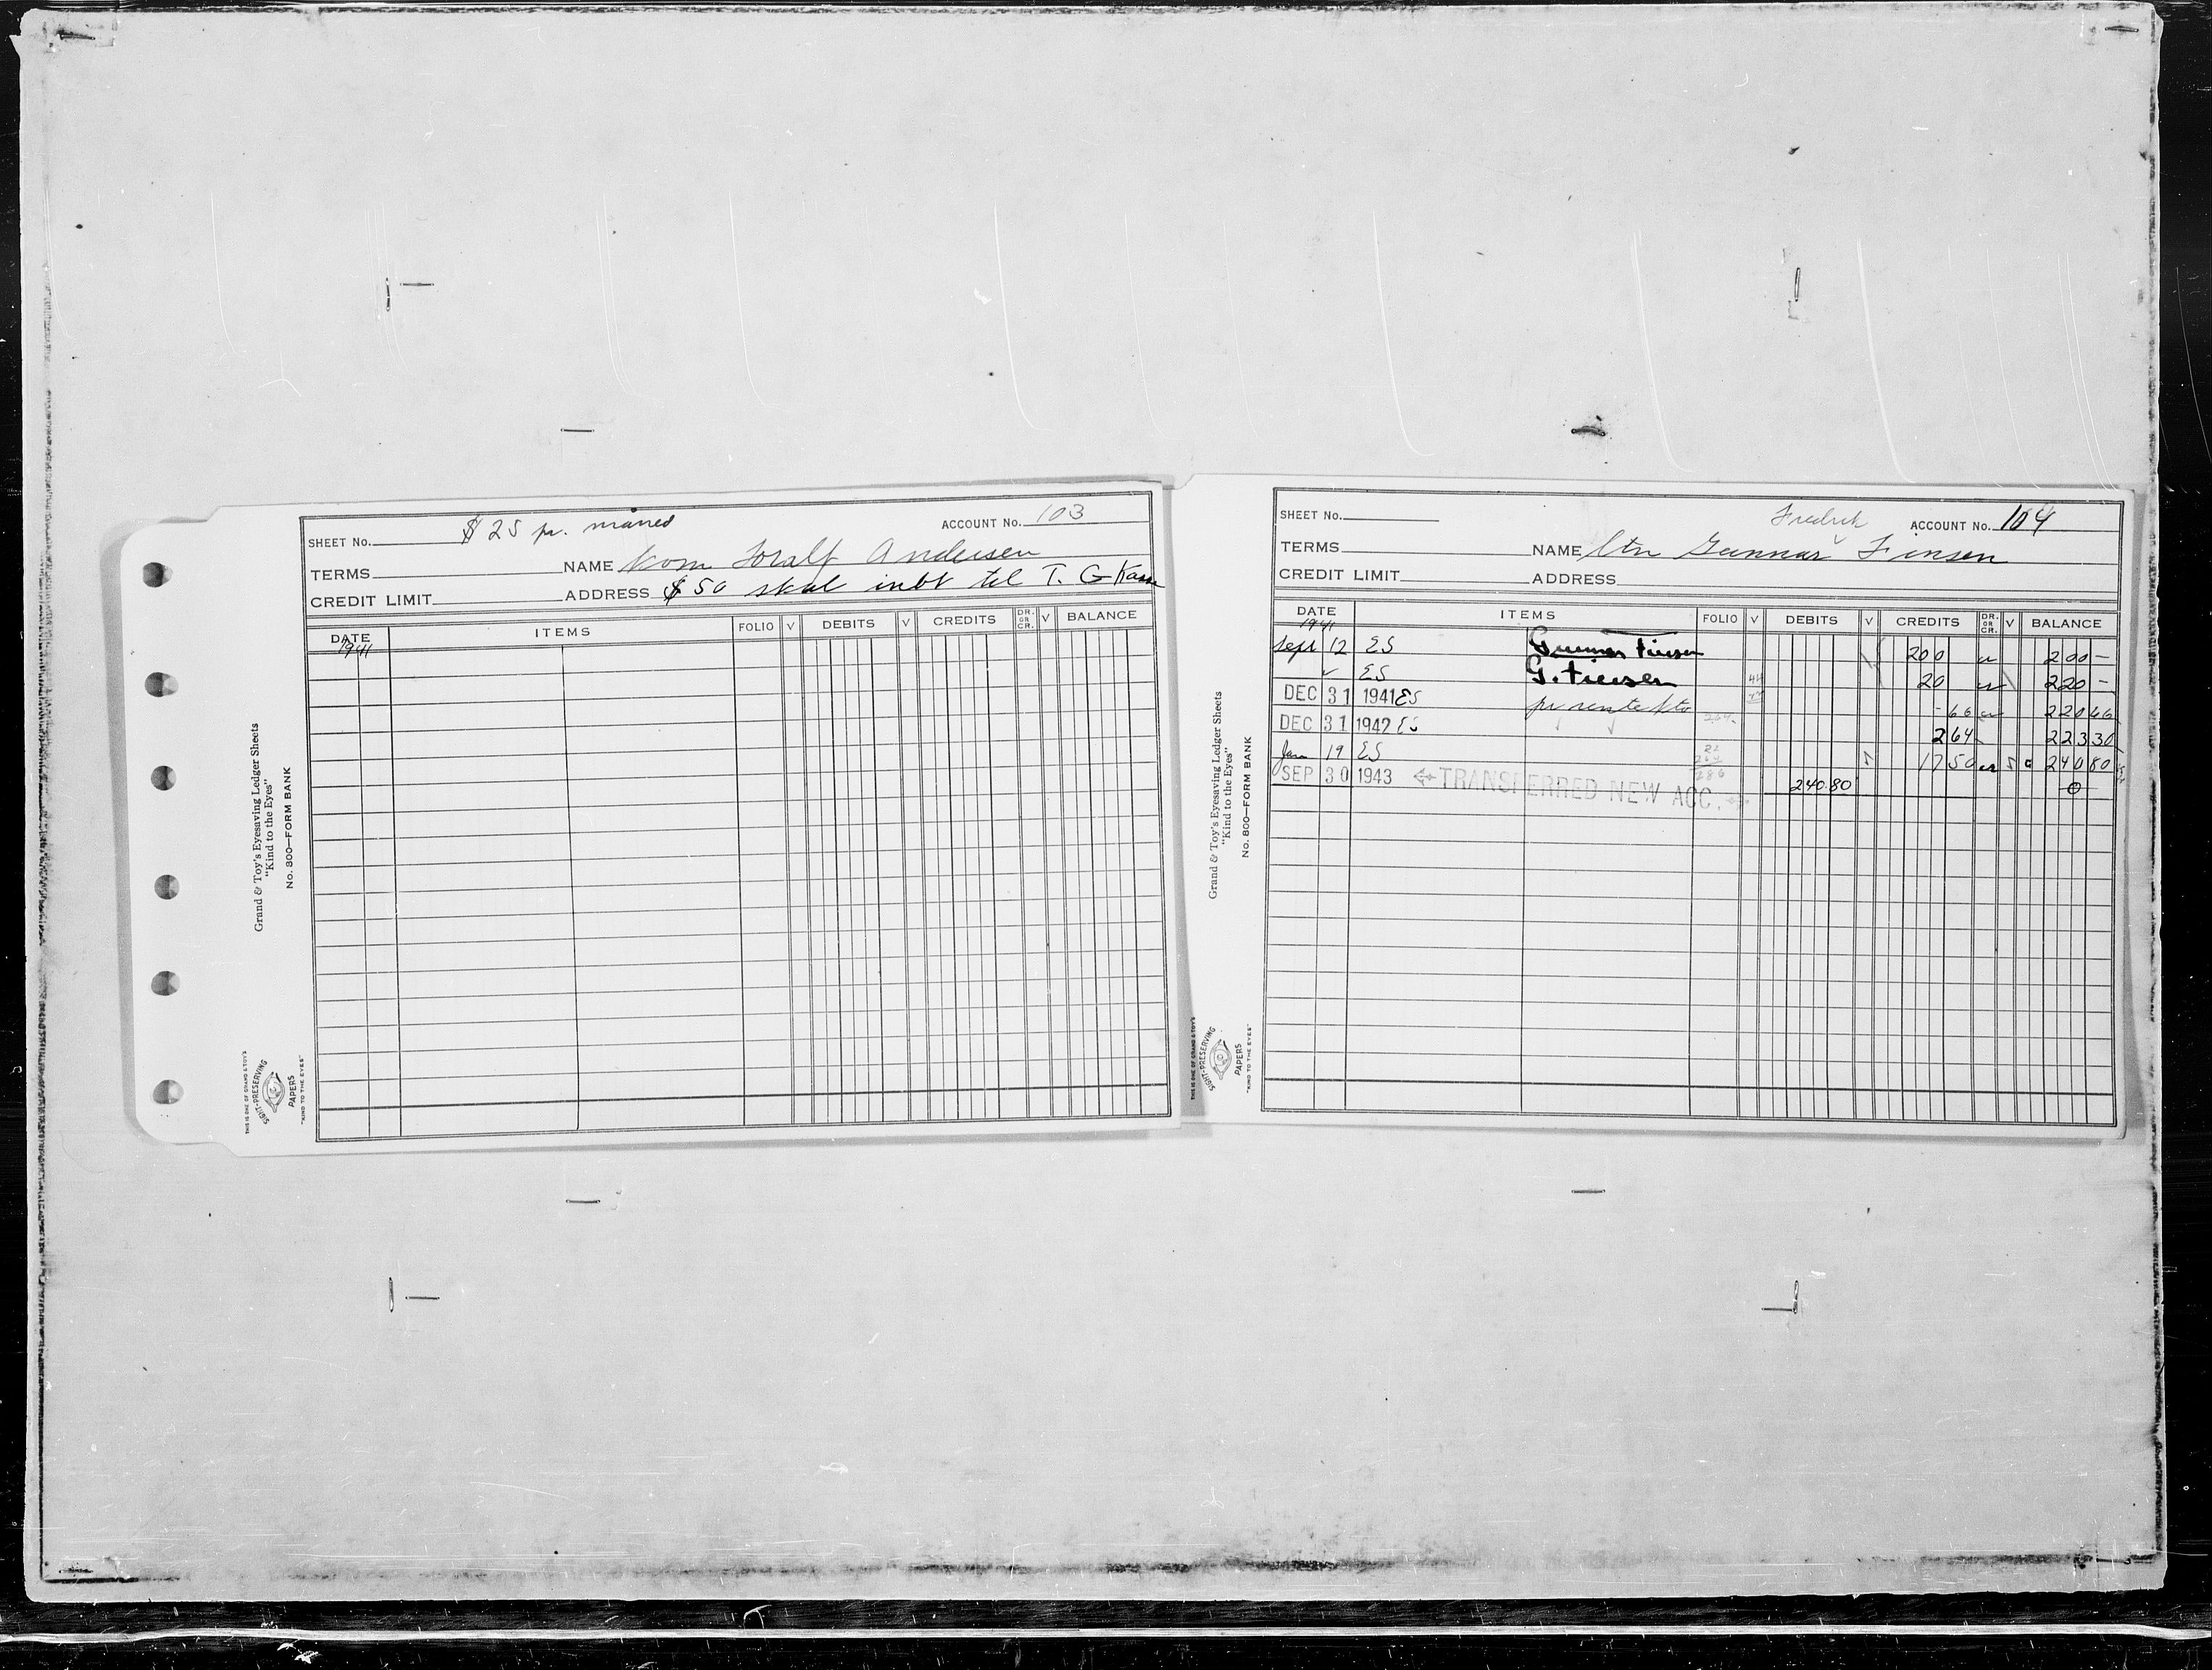 $25 pr. måned
SHEET No. ACCOUNT No. 103
TERMS NAME Kom Toralf Andersen
CREDIT LIMIT ADDRESS $50 skal inbt til T. G Kasse
DATE ITEMS FOLIO V DEBITS V CREDITS DR. OR CR. V BALANCE
1941
Grand & Toy's Eyesaving Ledger Sheets
"Kind to the Eyes"
No. 800—FORM BANK
THIS IS ONE OF GRAND & TOY'S
SIGHT-PRESERVING
PAPERS
"KIND TO THE EYES"
SHEET No. Fredrik ACCOUNT No. 104
TERMS NAME Ltn Gunnar Finsen
CREDIT LIMIT ADDRESS
DATE ITEMS FOLIO V DEBITS V CREDITS DR. OR CR. V BALANCE
1941
Sept 12 ES Gunnar Finsen 200 cr 200 —
" ES G. Finsen 44 20 cr 220 —
DEC 31 1941 ES pr rente kto - 66 cr 220 66
DEC 31 1942 ES 264 2 64 223 30
Jan 19 ES 17 50 cr 240 80
SEP 30 1943 TRANSFERRED NEW ACC. 286 240.80 0
Grand & Toy's Eyesaving Ledger Sheets
"Kind to the Eyes"
No. 800—FORM BANK
THIS IS ONE OF GRAND & TOY'S
SIGHT-PRESERVING
PAPERS
"KIND TO THE EYES"